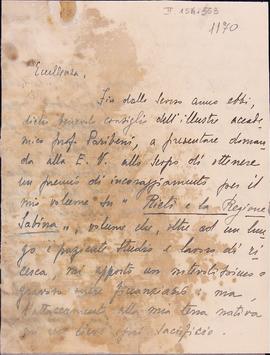 II 156:563
1170
Eccellenza,
Fin dallo scorso anno ebbi,
dietro benevolo consiglio dell'illustre accade-
mico prof. Paribeni, a presentare doman-
da alla E. V. allo scopo di ottenere
un premio di incoraggiamento per il
mio volume su "Rieti e la Regione
Sabina", volume che, oltre ad un lun-
go e paziente studio e lavoro di ri-
cerca, mi apportò un notevolissimo
gravame finanziario: ma
l'attaccamento alla mia terra nativa
sacrificio.